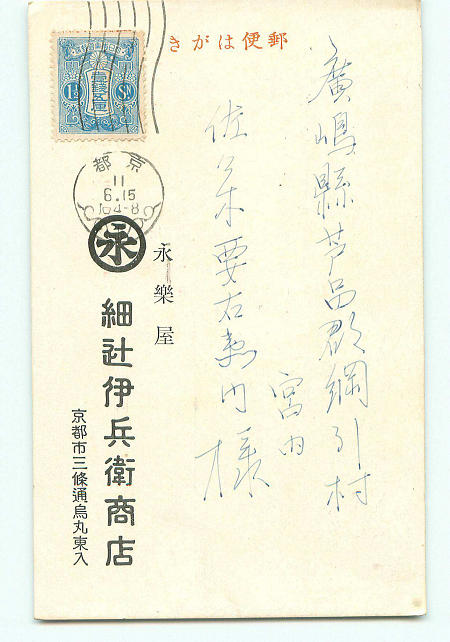 きがは 便郵
廣嶋縣芦品郡綱引村
宮内
佐々木要右衛門様
壹錢五厘
1½ Sn
都京
11
6.15
永
永樂屋
細辻伊兵衛商店
京都市三條通烏丸東入